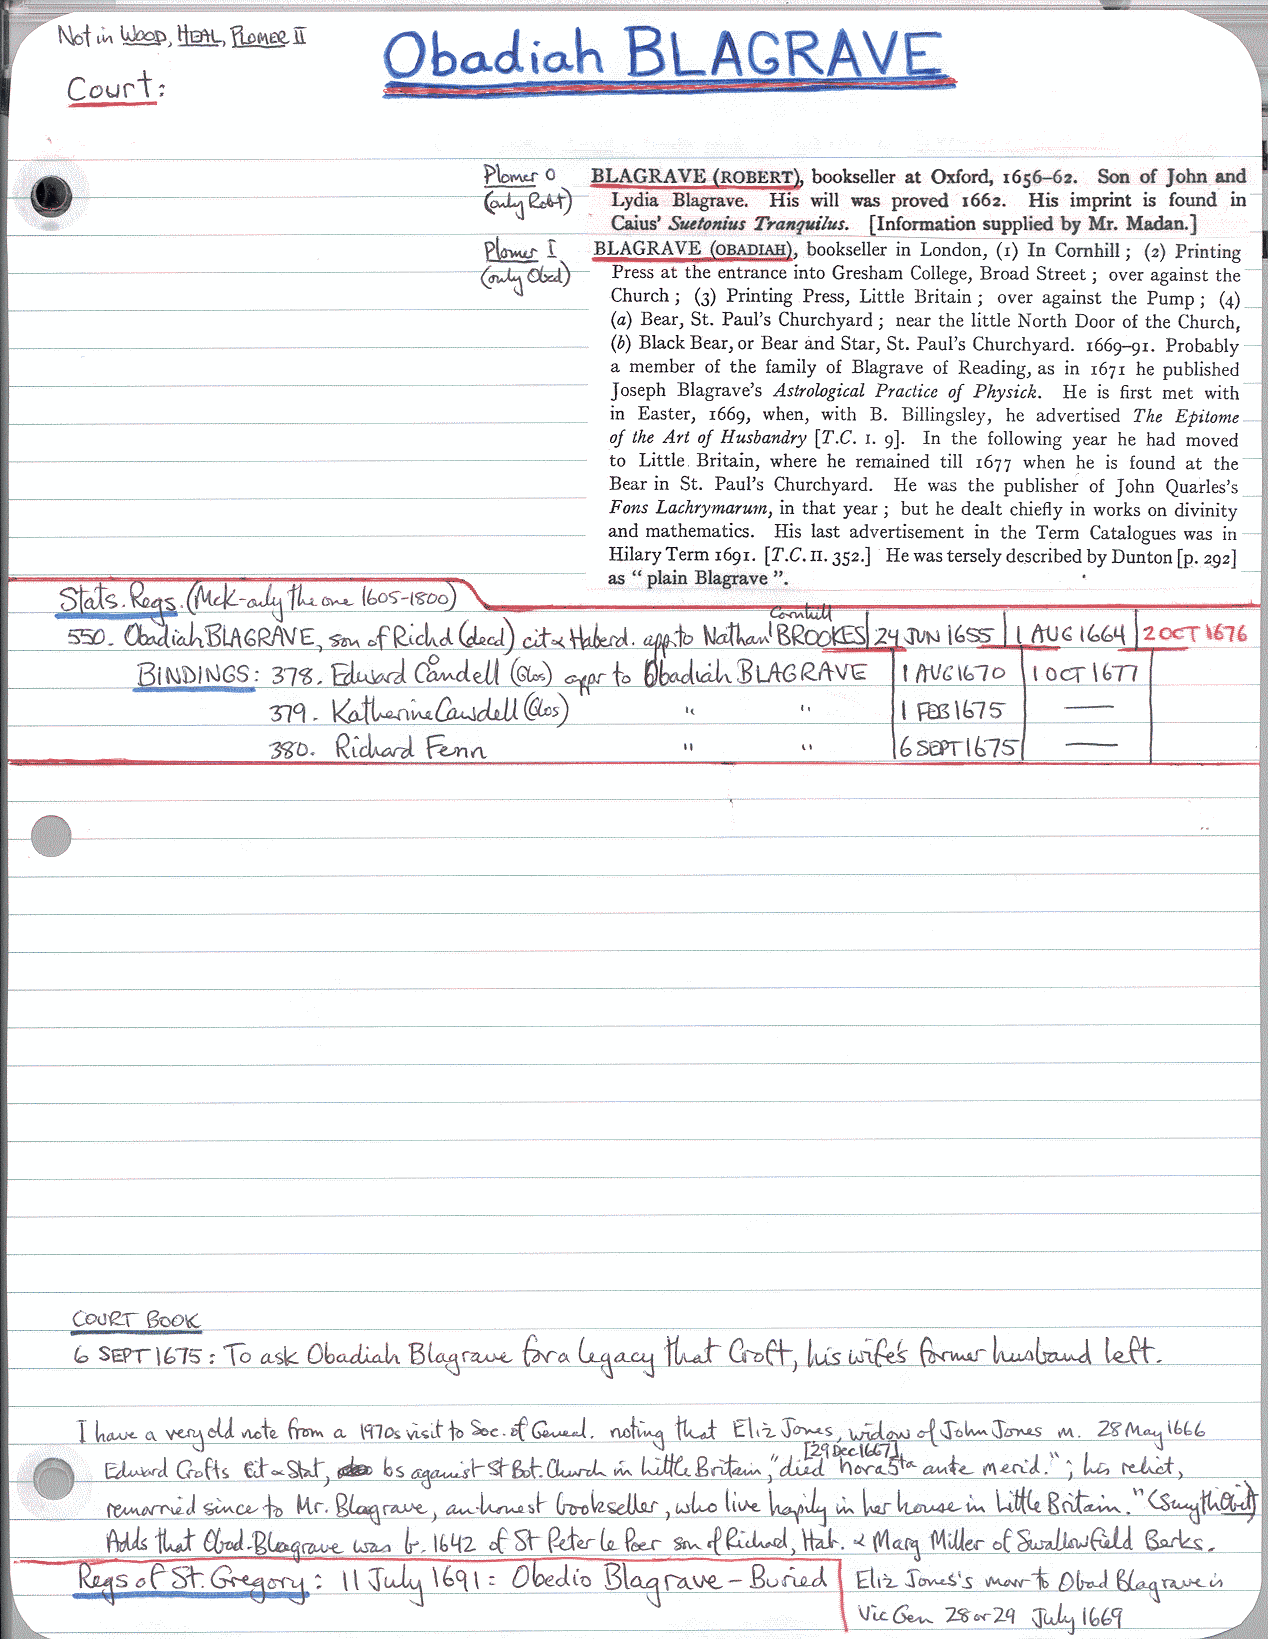 Not in WOOD, HEAL, PLOMER II
Obadiah BLAGRAVE
Court:
Plomer O
(only Robt)
BLAGRAVE (ROBERT), bookseller at Oxford, 1656–62. Son of John and
Lydia Blagrave. His will was proved 1662. His imprint is found in
Caius' Suetonius Tranquilus. [Information supplied by Mr. Madan.]
Plomer I
(only Obad)
BLAGRAVE (OBADIAH), bookseller in London, (1) In Cornhill; (2) Printing
Press at the entrance into Gresham College, Broad Street; over against the
Church; (3) Printing Press, Little Britain; over against the Pump; (4)
(a) Bear, St. Paul's Churchyard; near the little North Door of the Church,
(b) Black Bear, or Bear and Star, St. Paul's Churchyard. 1669–91. Probably
a member of the family of Blagrave of Reading, as in 1671 he published
Joseph Blagrave's Astrological Practice of Physick. He is first met with
in Easter, 1669, when, with B. Billingsley, he advertised The Epitome
of the Art of Husbandry [T.C. I. 9]. In the following year he had moved
to Little Britain, where he remained till 1677 when he is found at the
Bear in St. Paul's Churchyard. He was the publisher of John Quarles's
Fons Lachrymarum, in that year; but he dealt chiefly in works on divinity
and mathematics. His last advertisement in the Term Catalogues was in
Hilary Term 1691. [T.C. II. 352.] He was tersely described by Dunton [p. 292]
as "plain Blagrave".
Stats. Regs. (McK–only the one 1605–1800)
Cornhill
550. Obadiah BLAGRAVE, son of Richd (decd) cit & Haberd. app. to Nathanl BROOKES 24 JUN 1655 1 AUG 1664 2 OCT 1676
BINDINGS: 378. Edward Candell (Glos) appr to Obadiah BLAGRAVE 1 AUG 1670 1 OCT 1677
379. Katherine Cawdell (Glos) " " 1 FEB 1675 —
380. Richard Fenn " " 6 SEPT 1675 —
COURT BOOK
6 SEPT 1675: To ask Obadiah Blagrave for a legacy that Croft, his wife's former husband left.
I have a very old note from a 1970s visit to Soc. of Geneal. noting that Eliz Jones, widow of John Jones m. 28 May 1666
[29 Dec 1667]
Edward Crofts Cit & Stat, bs against St Bot. Church in Little Britain, "died hora 5ta ante merid."; his relict,
remarried since to Mr. Blagrave, an honest bookseller, who live happily in her house in Little Britain." (Smyth Obit)
Adds that Obad. Blagrave was b. 1642 of St Peter le Poer son of Richard, Hab. & Marg Miller of Swallowfield Berks.
Regs of St. Gregory: 11 July 1691: Obedio Blagrave – Buried
Eliz Jones's marr to Obad Blagrave is
Vic Gen 28 or 29 July 1669